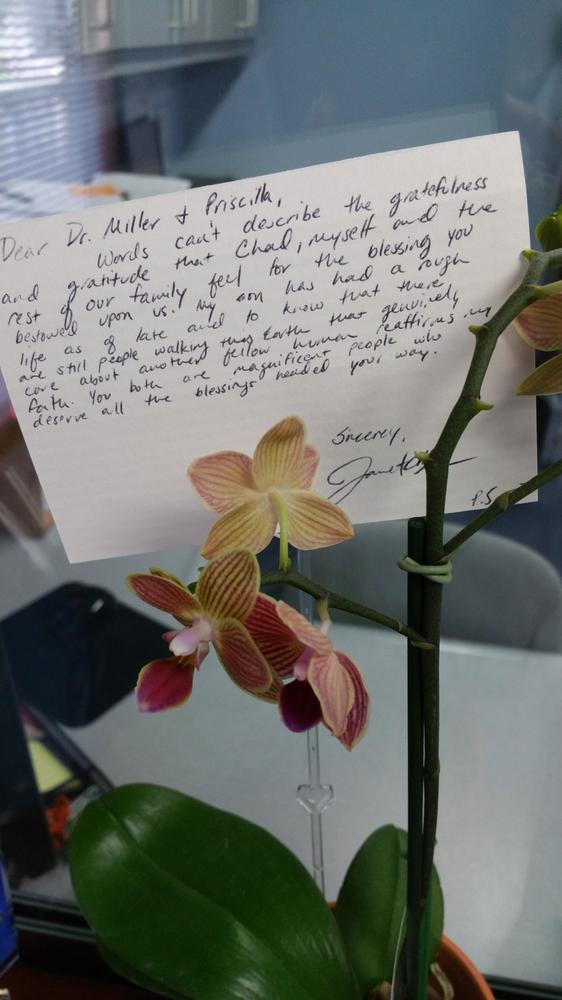 Dear Dr. Miller & Priscilla,
Words can't describe the gratefulness
and gratitude that Chad, myself and the
rest of our family feel for the blessing you
bestowed upon us. My son has had a rough
life as of late and to know that there
are still people walking this Earth that genuinely
care about another fellow human reaffirms my
faith. You both are magnificent people who
deserve all the blessings headed your way.
Sincerey,
P.S